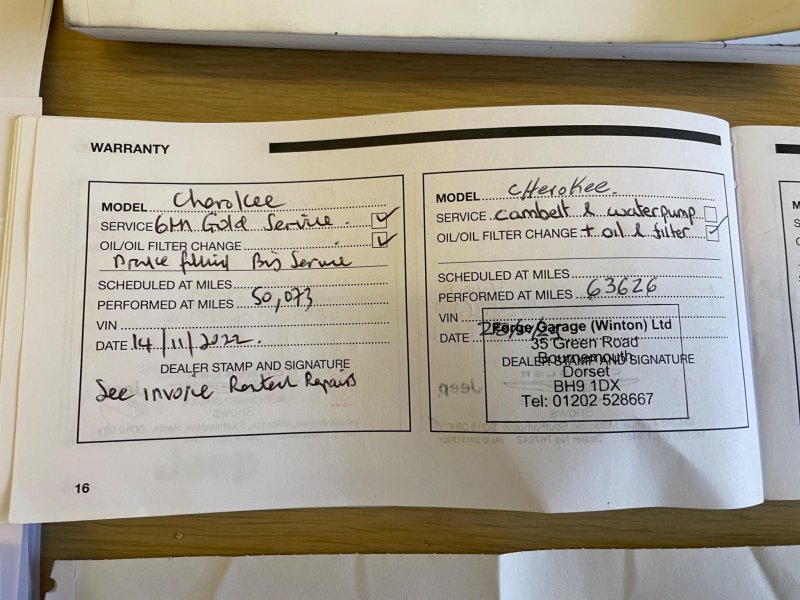 WARRANTY
MODEL Cherokee
SERVICE 6th Gold Service.
OIL/OIL FILTER CHANGE
Brake fluid Big Service
SCHEDULED AT MILES
PERFORMED AT MILES 50,073
VIN
DATE 14/11/2022.
DEALER STAMP AND SIGNATURE
See invoice Repairs
16
MODEL CHeroKee.
SERVICE cambelt & waterpump
OIL/OIL FILTER CHANGE + oil & filter
SCHEDULED AT MILES
PERFORMED AT MILES 63626
VIN
DATE
Forge Garage (Winton) Ltd
35 Green Road
Bournemouth
DEALER STAMP AND SIGNATURE
Dorset
BH9 1DX
Tel: 01202 528667